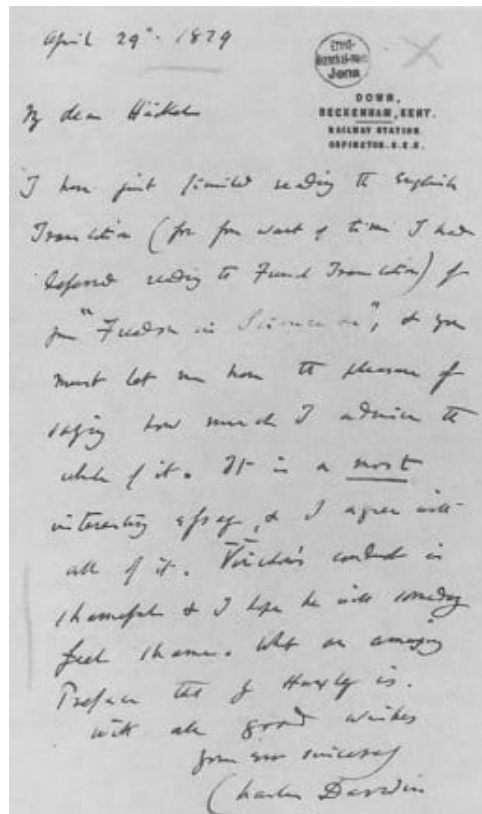 April 29th. 1879
Ernst-
Haeckel-Haus
Jena
DOWN,
BECKENHAM, KENT.
RAILWAY STATION
ORPINGTON. S.E.R.
My dear Häckel
I have just finished reading the English
Translation (for from want of time I had
deferred reading the French Translation) of
your "Freedom in Science &c", & you
must let me have the pleasure of
saying how much I admire the
whole of it. It is a most
interesting essay, & I agree with
all of it. Virchow's conduct is
shameful & I hope he will someday
feel shame. What an amusing
Preface that of Huxley is.
With all good wishes
yours ever sincerely
Charles Darwin